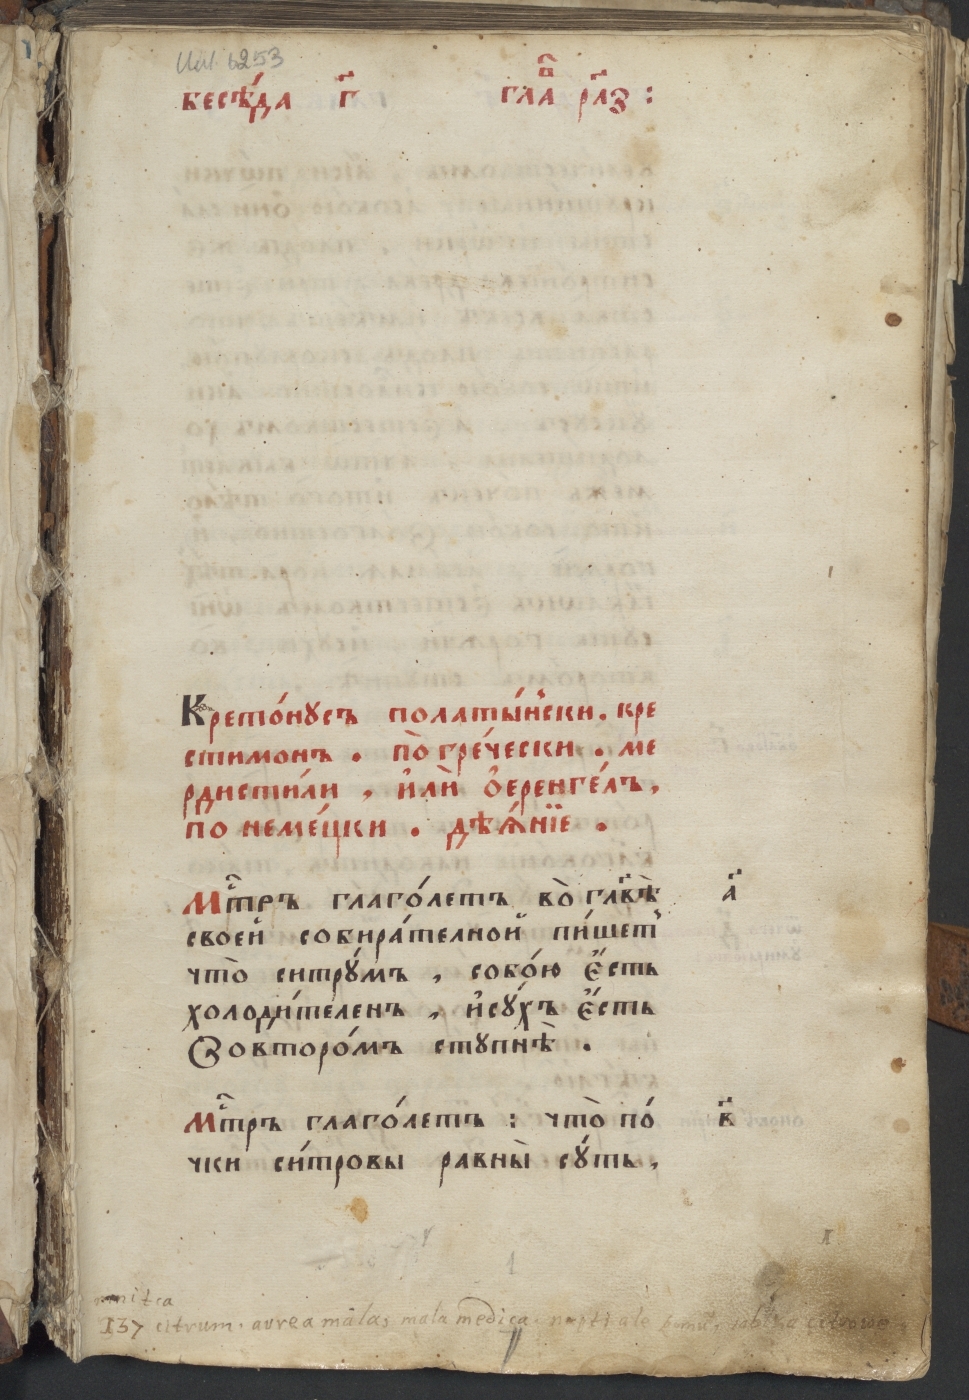 бесѣ́да г҃ гла́в р҃лз :
Кре́то́нусъ полаты́нски . кре
стимонъ . по̀ гре́чески . ме
рдисти́ли , и҆лѝ ѻ҆еренге́лъ ,
по неме́цки . дѣѧ́нїе .
М҃тръ глаго́летъ во̀ гл҃вѣ̀ а҃
своеи̂ собира́телнои̂ пи́шетъ
что̀ ситру́мъ , собо́ю є҆́сть
холоди́теленъ , и҆су́хъ є҆́сть
Ѿ второ́мъ ступнѣ̀ .
М҃тръ глаго́летъ : что̀ по́ в҃
чки си́тровы равны̀ су́ть ,
1
137 citrum . aurea malas mala medica .